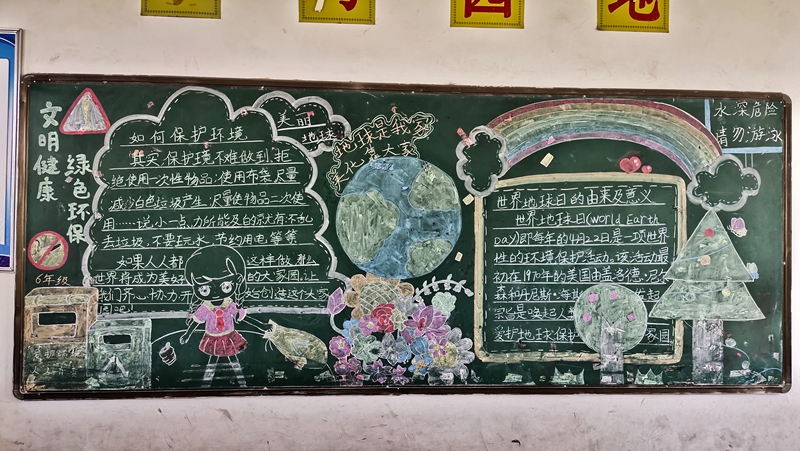 园地
文明健康
绿色环保
6年级
如何保护环境
其实,保护境不难做到,拒
绝使用一次性物品,使用布袋,尽量
减少白色垃圾产生,尽量使物品二次使
用……说小一点,力所能及的就有:不乱
去垃圾,不要玩水,节约用电,等等
如果人人都这样做,那么
世界将成为美好的大家园,让
我们齐心协力,开始创造这个大家
园吧!
美丽
地球
地球是我家
大家
世界地球日的由来及意义
世界地球日(World Earth
Day)即每年的4月22日是一项世界
性的环境保护活动,该活动最
初在1970年的美国由盖洛德·尼尔
森和丹尼斯·海
宗旨是唤起人
爱护地球保护家园
水深危险
请勿游泳